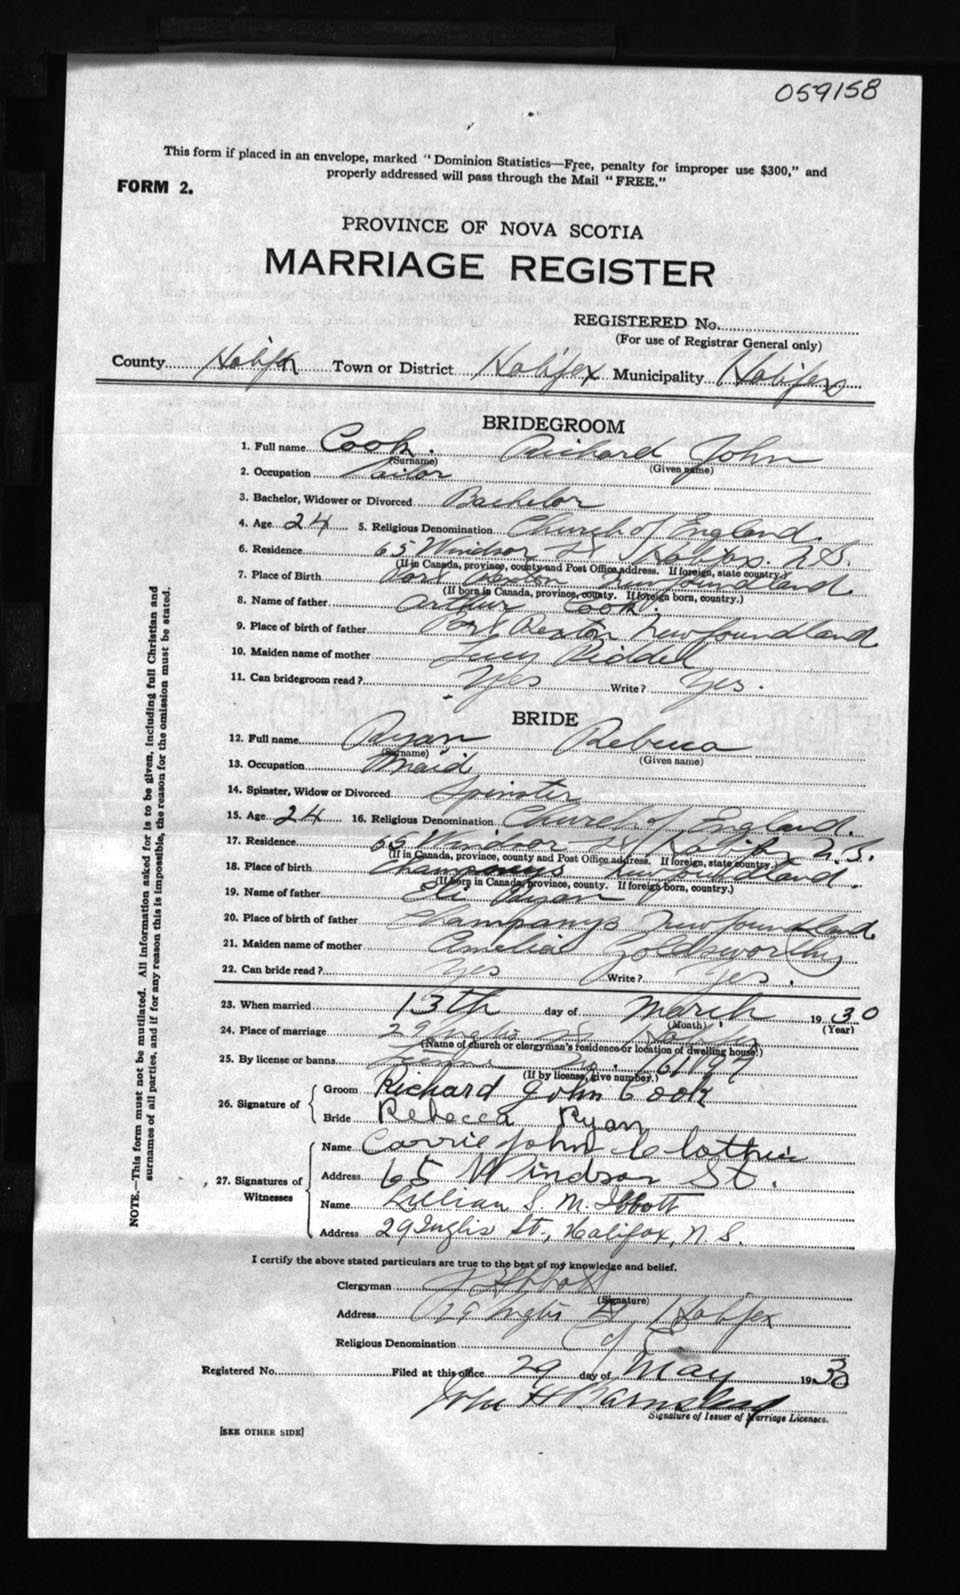 059158
This form if placed in an envelope, marked "Dominion Statistics—Free, penalty for improper use $300," and
properly addressed will pass through the Mail "FREE."
FORM 2.
PROVINCE OF NOVA SCOTIA
MARRIAGE REGISTER
REGISTERED No.
(For use of Registrar General only)
County Halifax Town or District Halifax Municipality Halifax
BRIDEGROOM
1. Full name Cook. Richard John
(Surname) (Given name)
2. Occupation
3. Bachelor, Widower or Divorced Bachelor
4. Age 24 5. Religious Denomination Church of England.
6. Residence 65 Windsor St Halifax. N.S.
(If in Canada, province, county and Post Office address. If foreign, state country.)
7. Place of Birth Port Rexton Newfoundland.
(If born in Canada, province, county. If foreign born, country.)
8. Name of father Arthur Cook.
9. Place of birth of father Port Rexton Newfoundland
10. Maiden name of mother Lucy Riddel
11. Can bridegroom read? Yes Write? Yes.
BRIDE
12. Full name Ryan Rebecca
(Surname) (Given name)
13. Occupation Maid
14. Spinster, Widow or Divorced Spinster
15. Age 24 16. Religious Denomination Church of England.
17. Residence 65 Windsor St Halifax N.S.
(If in Canada, province, county and Post Office address. If foreign, state country.)
18. Place of birth Champneys Newfoundland.
(If born in Canada, province, county. If foreign born, country.)
19. Name of father Eli Ryan
20. Place of birth of father Champanys Newfoundland
21. Maiden name of mother Amelia Goldsworthy
22. Can bride read? Yes Write? Yes.
23. When married 13th day of March 1930
(Month) (Year)
24. Place of marriage 29 Inglis St Halifax
(Name of church or clergyman's residence or location of dwelling house.)
25. By license or banns No. 161097
(If by license, give number.)
26. Signature of Groom Richard John Cook
Bride Rebecca Ryan
27. Signatures of Witnesses Name Carrie John
Address 65 Windsor St.
Name Lillian S. M. Ibbott
Address 29 Inglis St., Halifax, N.S.
I certify the above stated particulars are true to the best of my knowledge and belief.
Clergyman Ibbott
(Signature)
Address 29 Inglis St Halifax
Religious Denomination C of E
Registered No. Filed at this office 29 day of May 1930
John H Barnstead
Signature of Issuer of Marriage Licenses.
[SEE OTHER SIDE]
NOTE.—This form must not be mutilated. All information asked for is to be given, including full Christian and
surnames of all parties, and if for any reason this is impossible, the reason for the omission must be stated.